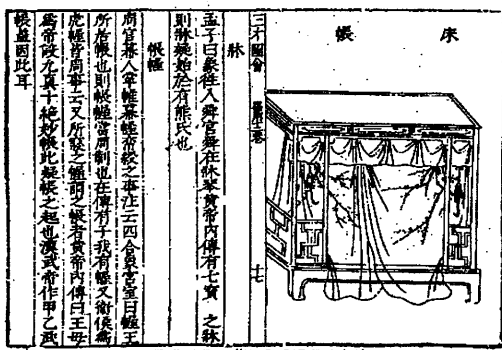 床帳
三才圖會
十七
牀
孟子曰象往入舜宮舜在牀琴黃帝內傳有七寶之牀
則牀疑始於有熊氏也
帳幄
周官幕人掌帷幕幄帟綬之事注云四合象宮室曰幄王
所居帳也則帳幄當周制也左傳有子我有幄又衛侯爲
虎幄皆周事云又所聚之幄謂之帳者黃帝內傳曰王母
爲帝設九真十絕妙帳此疑帳之起也漢武帝作甲乙武
帳盖因此耳